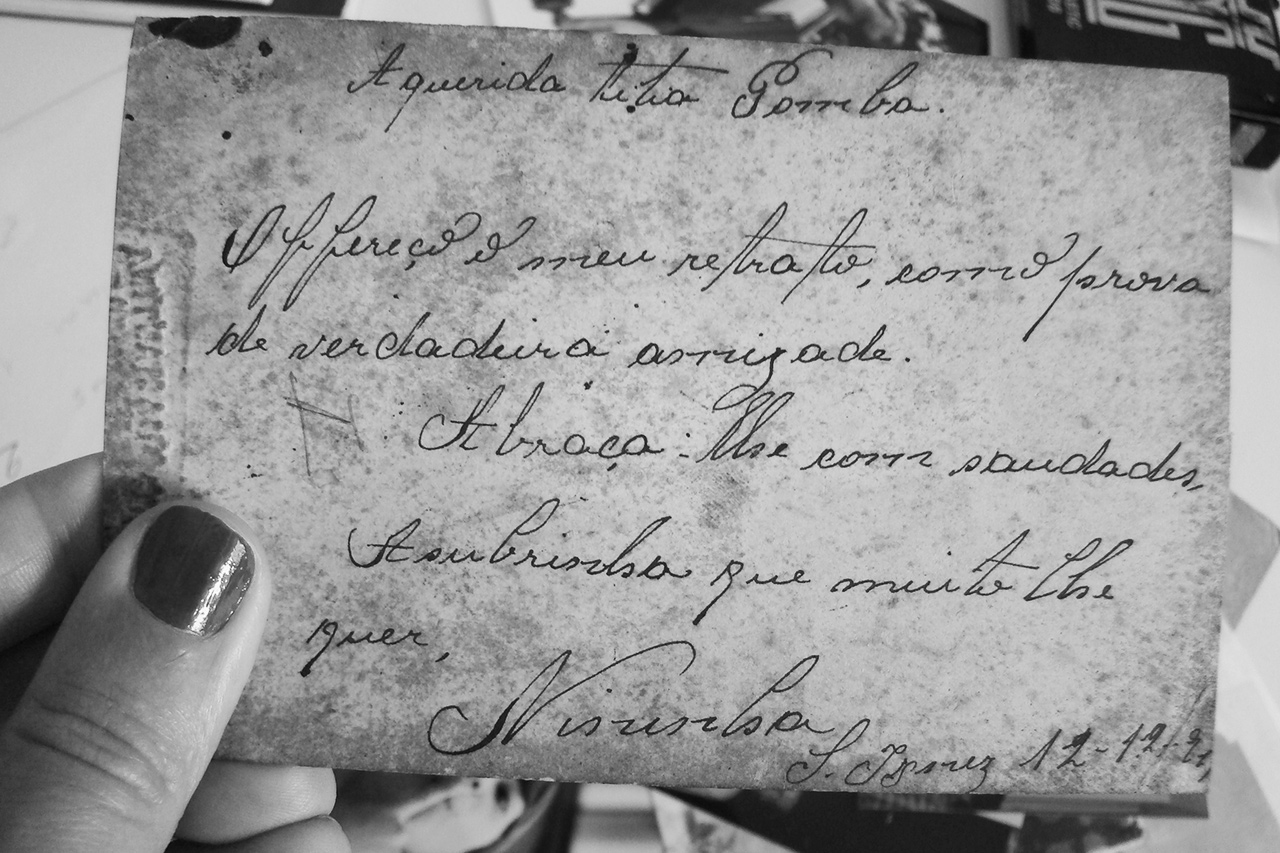 A querida titia Pomba.
Offereço o meu retrato, como prova
de verdadeira amizade.
Abraça-lhe com saudades,
A subrinha que muito lhe
quer,
Nininha
12-12-